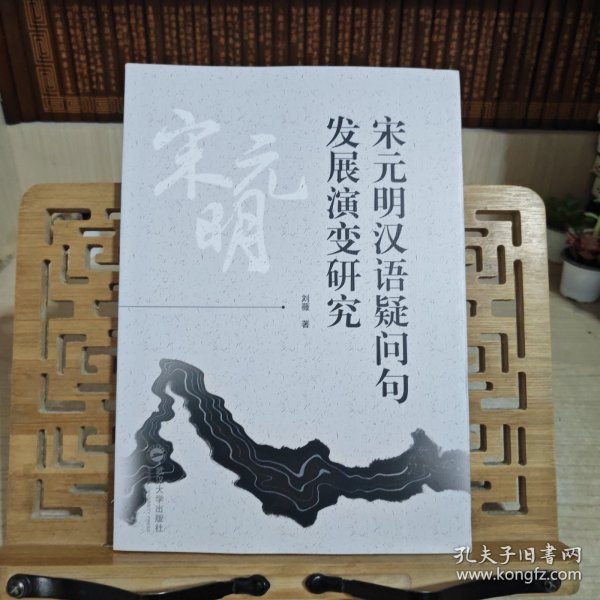 宋元明汉语疑问句
发展演变研究
宋元明
刘薇 著
武汉大学出版社
孔夫子旧书网
www.kongfz.com